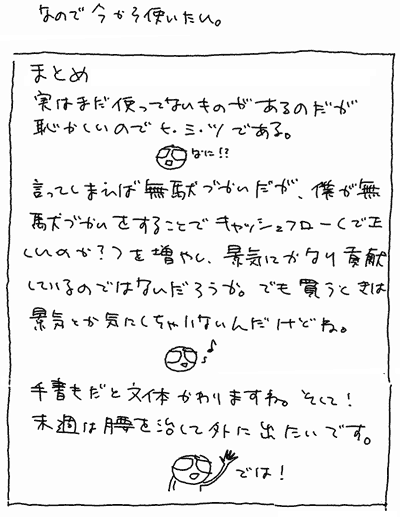 なので今から使いたい。
まとめ
実はまだ使ってないものがあるのだが
恥かしいのでヒ・ミ・ツである。
なに!?
言ってしまえば無駄づかいだが、僕が無
駄づかいをすることでキャッシュフロー(で正
しいのか?)を増やし、景気にかなり貢献
しているのではないだろうか。でも買うときは
景気とか気にしちゃいないんだけどね。
♪
手書きだと文体かわりますね。そして!
来週は腰を治して外に出たいです。
では!